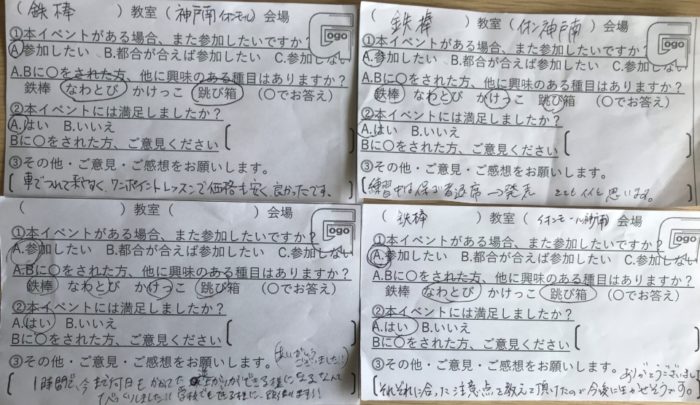 (鉄棒)教室(神戸南イオンモール)会場
ogo
①本イベントがある場合、また参加したいですか?
A.参加したい B.都合が合えば参加したい C.参加しない
A.Bに〇をされた方、他に興味のある種目はありますか?
鉄棒 なわとび かけっこ 跳び箱 (〇でお答え)
②本イベントには満足しましたか?
A.はい B.いいえ
Bに〇をされた方、ご意見ください
③その他・ご意見・ご感想をお願いします。
車でつれて来やすく、ワンポイントレッスンで価格も安く良かったです。
(鉄棒)教室(イオン神戸南)会場
ogo
①本イベントがある場合、また参加したいですか?
A.参加したい B.都合が合えば参加したい C.参加しない
A.Bに〇をされた方、他に興味のある種目はありますか?
鉄棒 なわとび かけっこ 跳び箱 (〇でお答え)
②本イベントには満足しましたか?
A.はい B.いいえ
Bに〇をされた方、ご意見ください
③その他・ご意見・ご感想をお願いします。
練習中は保護者退席→発表 とてもイイと思います。
( )教室( )会場
ogo
①本イベントがある場合、また参加したいですか?
A.参加したい B.都合が合えば参加したい C.参加しない
A.Bに〇をされた方、他に興味のある種目はありますか?
鉄棒 なわとび かけっこ 跳び箱 (〇でお答え)
②本イベントには満足しましたか?
A.はい B.いいえ
Bに〇をされた方、ご意見ください
③その他・ご意見・ご感想をお願いします。
1時間で、今まで何日もかかってた逆上がりができる程になるなんて
びっくりしました!!
(鉄棒)教室(イオンモール神戸南)会場
ogo
①本イベントがある場合、また参加したいですか?
A.参加したい B.都合が合えば参加したい C.参加しない
A.Bに〇をされた方、他に興味のある種目はありますか?
鉄棒 なわとび かけっこ 跳び箱 (〇でお答え)
②本イベントには満足しましたか?
A.はい B.いいえ
Bに〇をされた方、ご意見ください
③その他・ご意見・ご感想をお願いします。
ありがとうございました
それぞれに合った注意点を教えて頂けたので今後に生かせそうです。